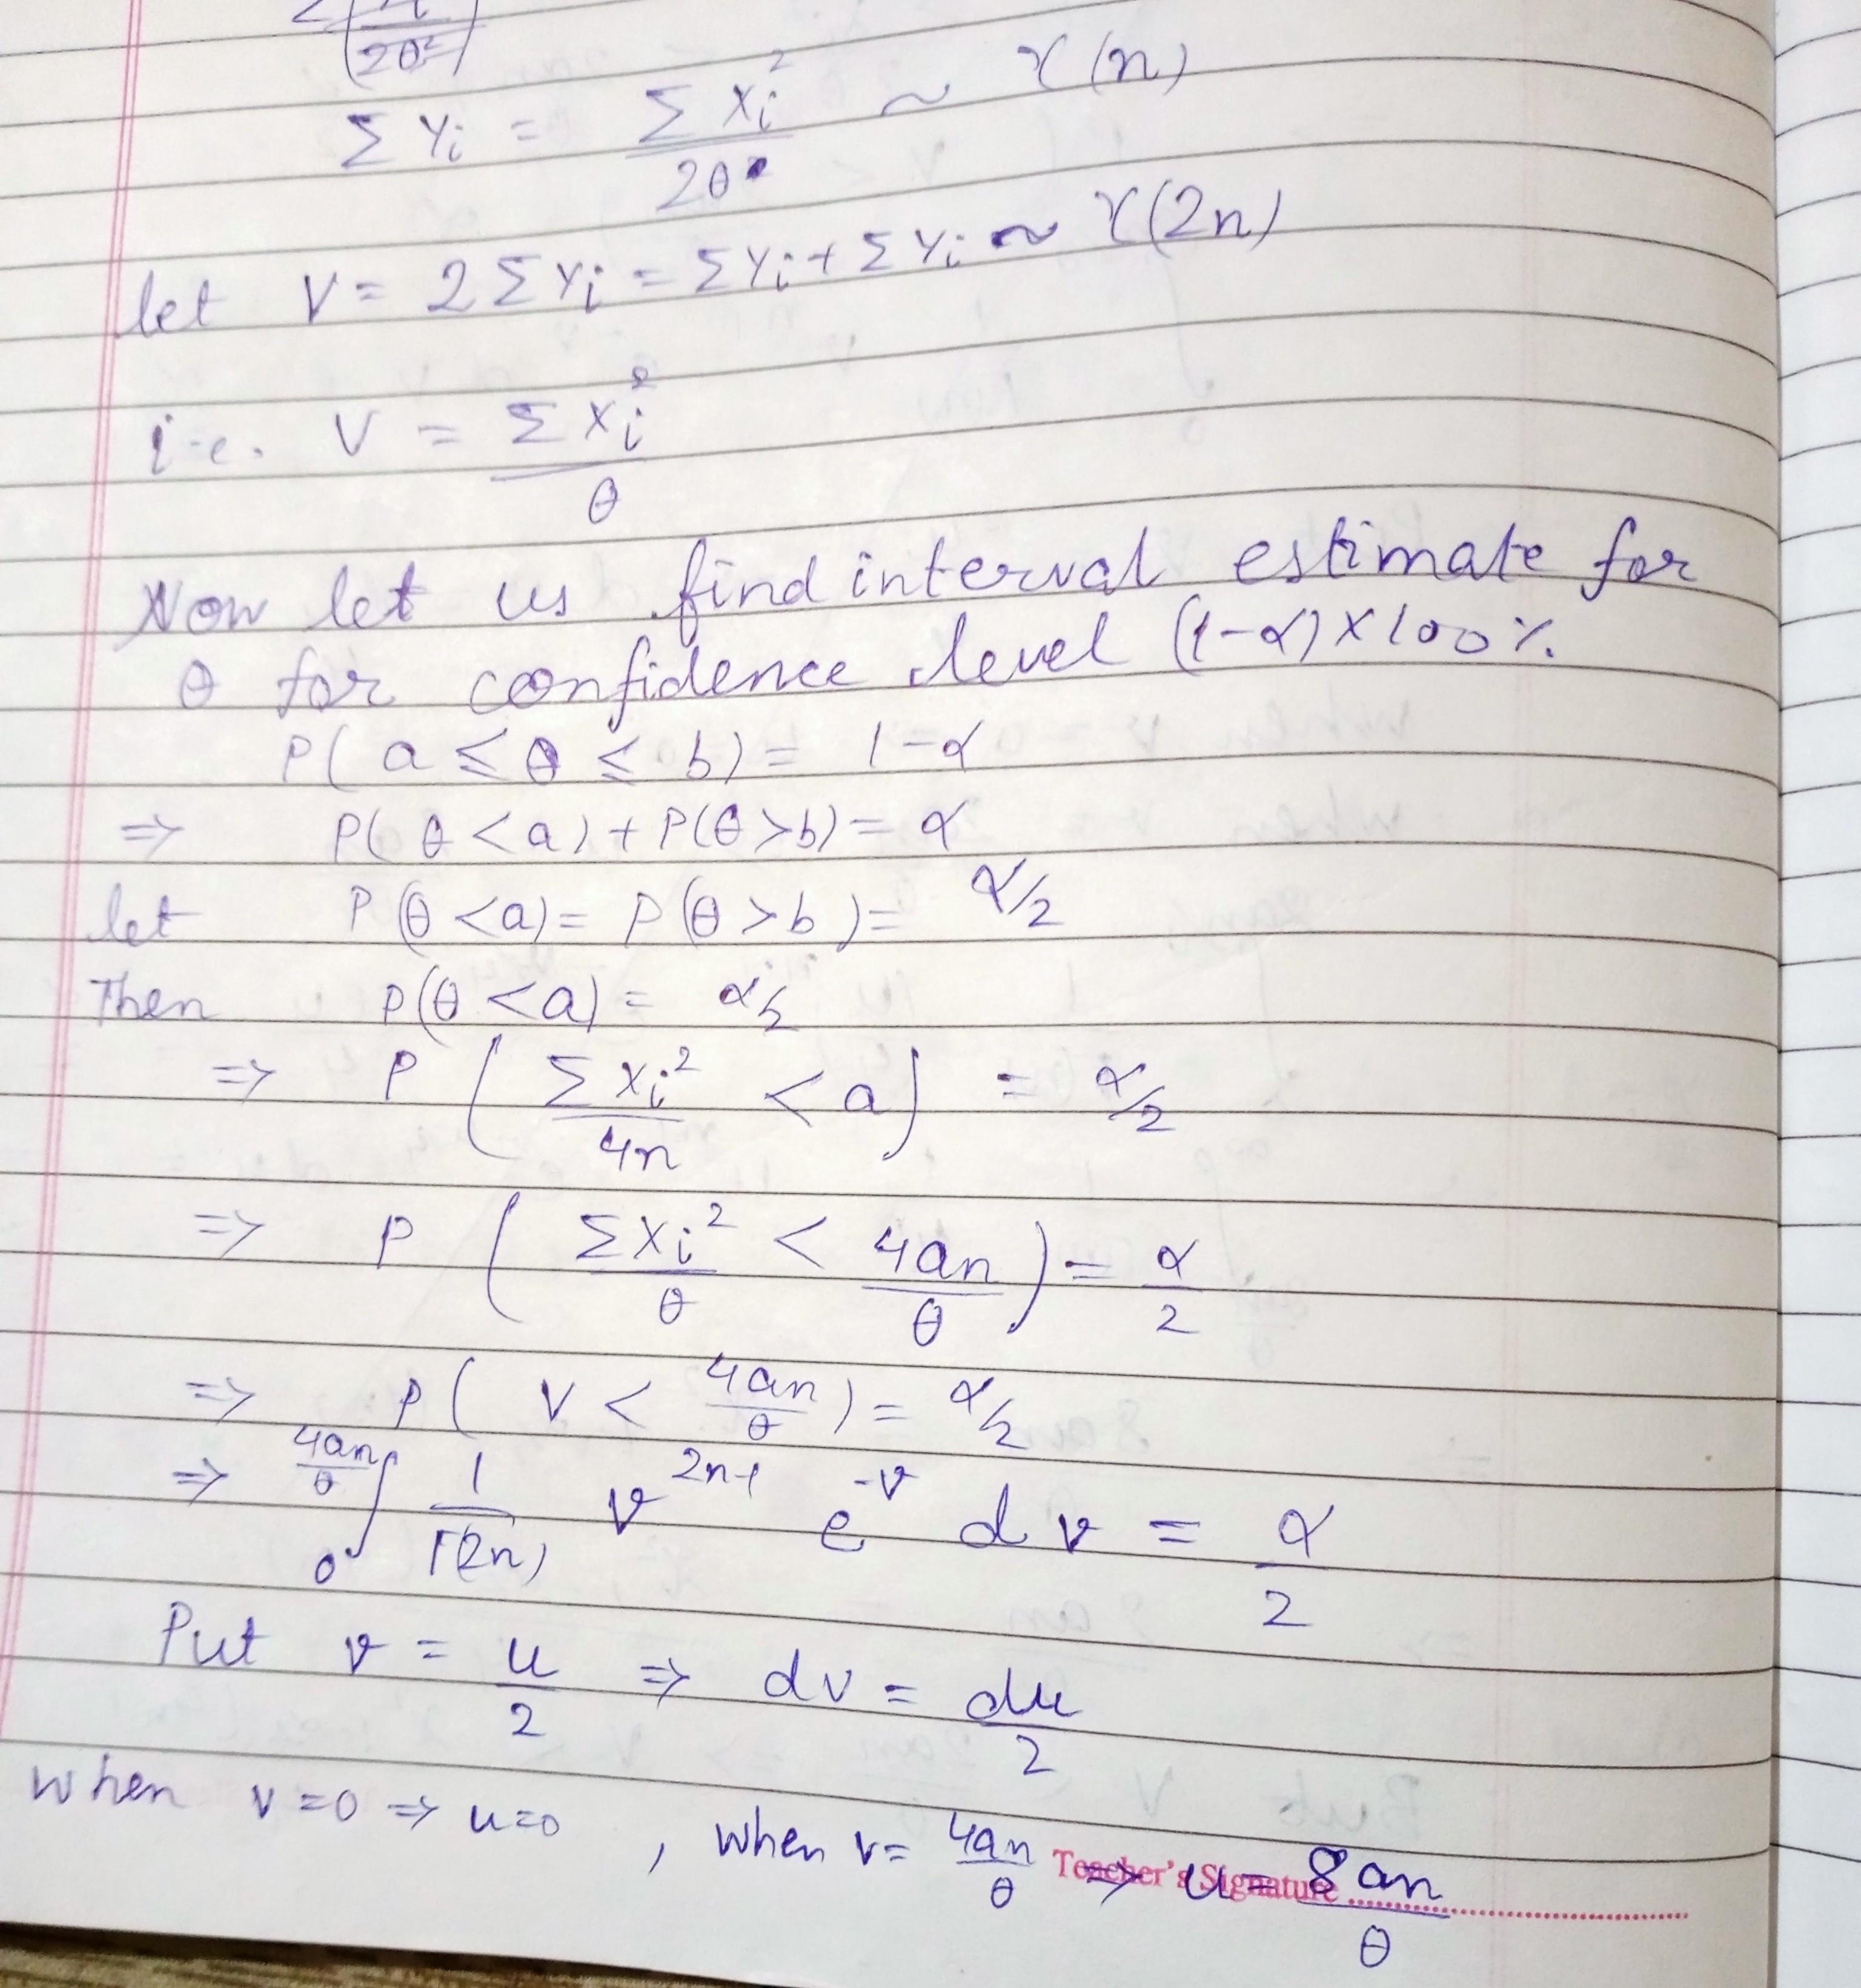 2θ²
Σ Yi = Σ Xi² / 2θ ~ γ(n)
let V = 2 Σ Yi = Σ Yi + Σ Yi ~ γ(2n)
i.e. V = Σ Xi² / θ
Now let us find interval estimate for
θ for confidence level (1-α) × 100%
P( a ≤ θ ≤ b) = 1-α
⇒ P( θ < a) + P(θ > b) = α
let P(θ < a) = P(θ > b) = α/2
Then P(θ < a) = α/2
⇒ P ( Σ Xi² / 4n < a ) = α/2
⇒ P ( Σ Xi² / θ < 4an / θ ) = α / 2
⇒ P( V < 4an / θ ) = α/2
⇒ ∫₀^(4an/θ) 1 / Γ(2n) v^(2n-1) e^(-v) dv = α / 2
Put v = u / 2 ⇒ dv = du / 2
When v=0 ⇒ u=0 , when v= 4an / θ ⇒ u = 8an / θ
Teacher's Signature